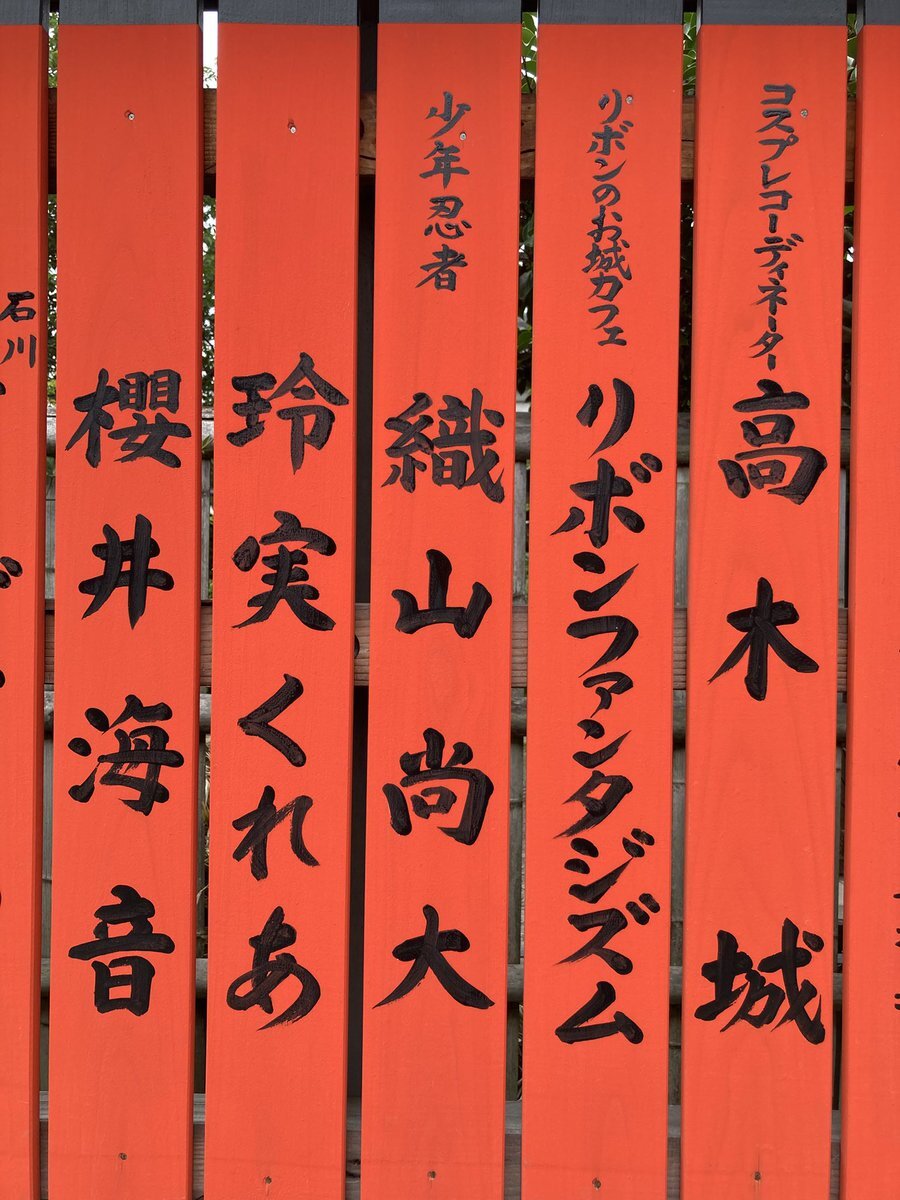 コスプレコーディネーター
高木城
リボンのお城カフェ
リボンファンタジズム
少年忍者
織山尚大
玲実くれあ
櫻井海音
石川